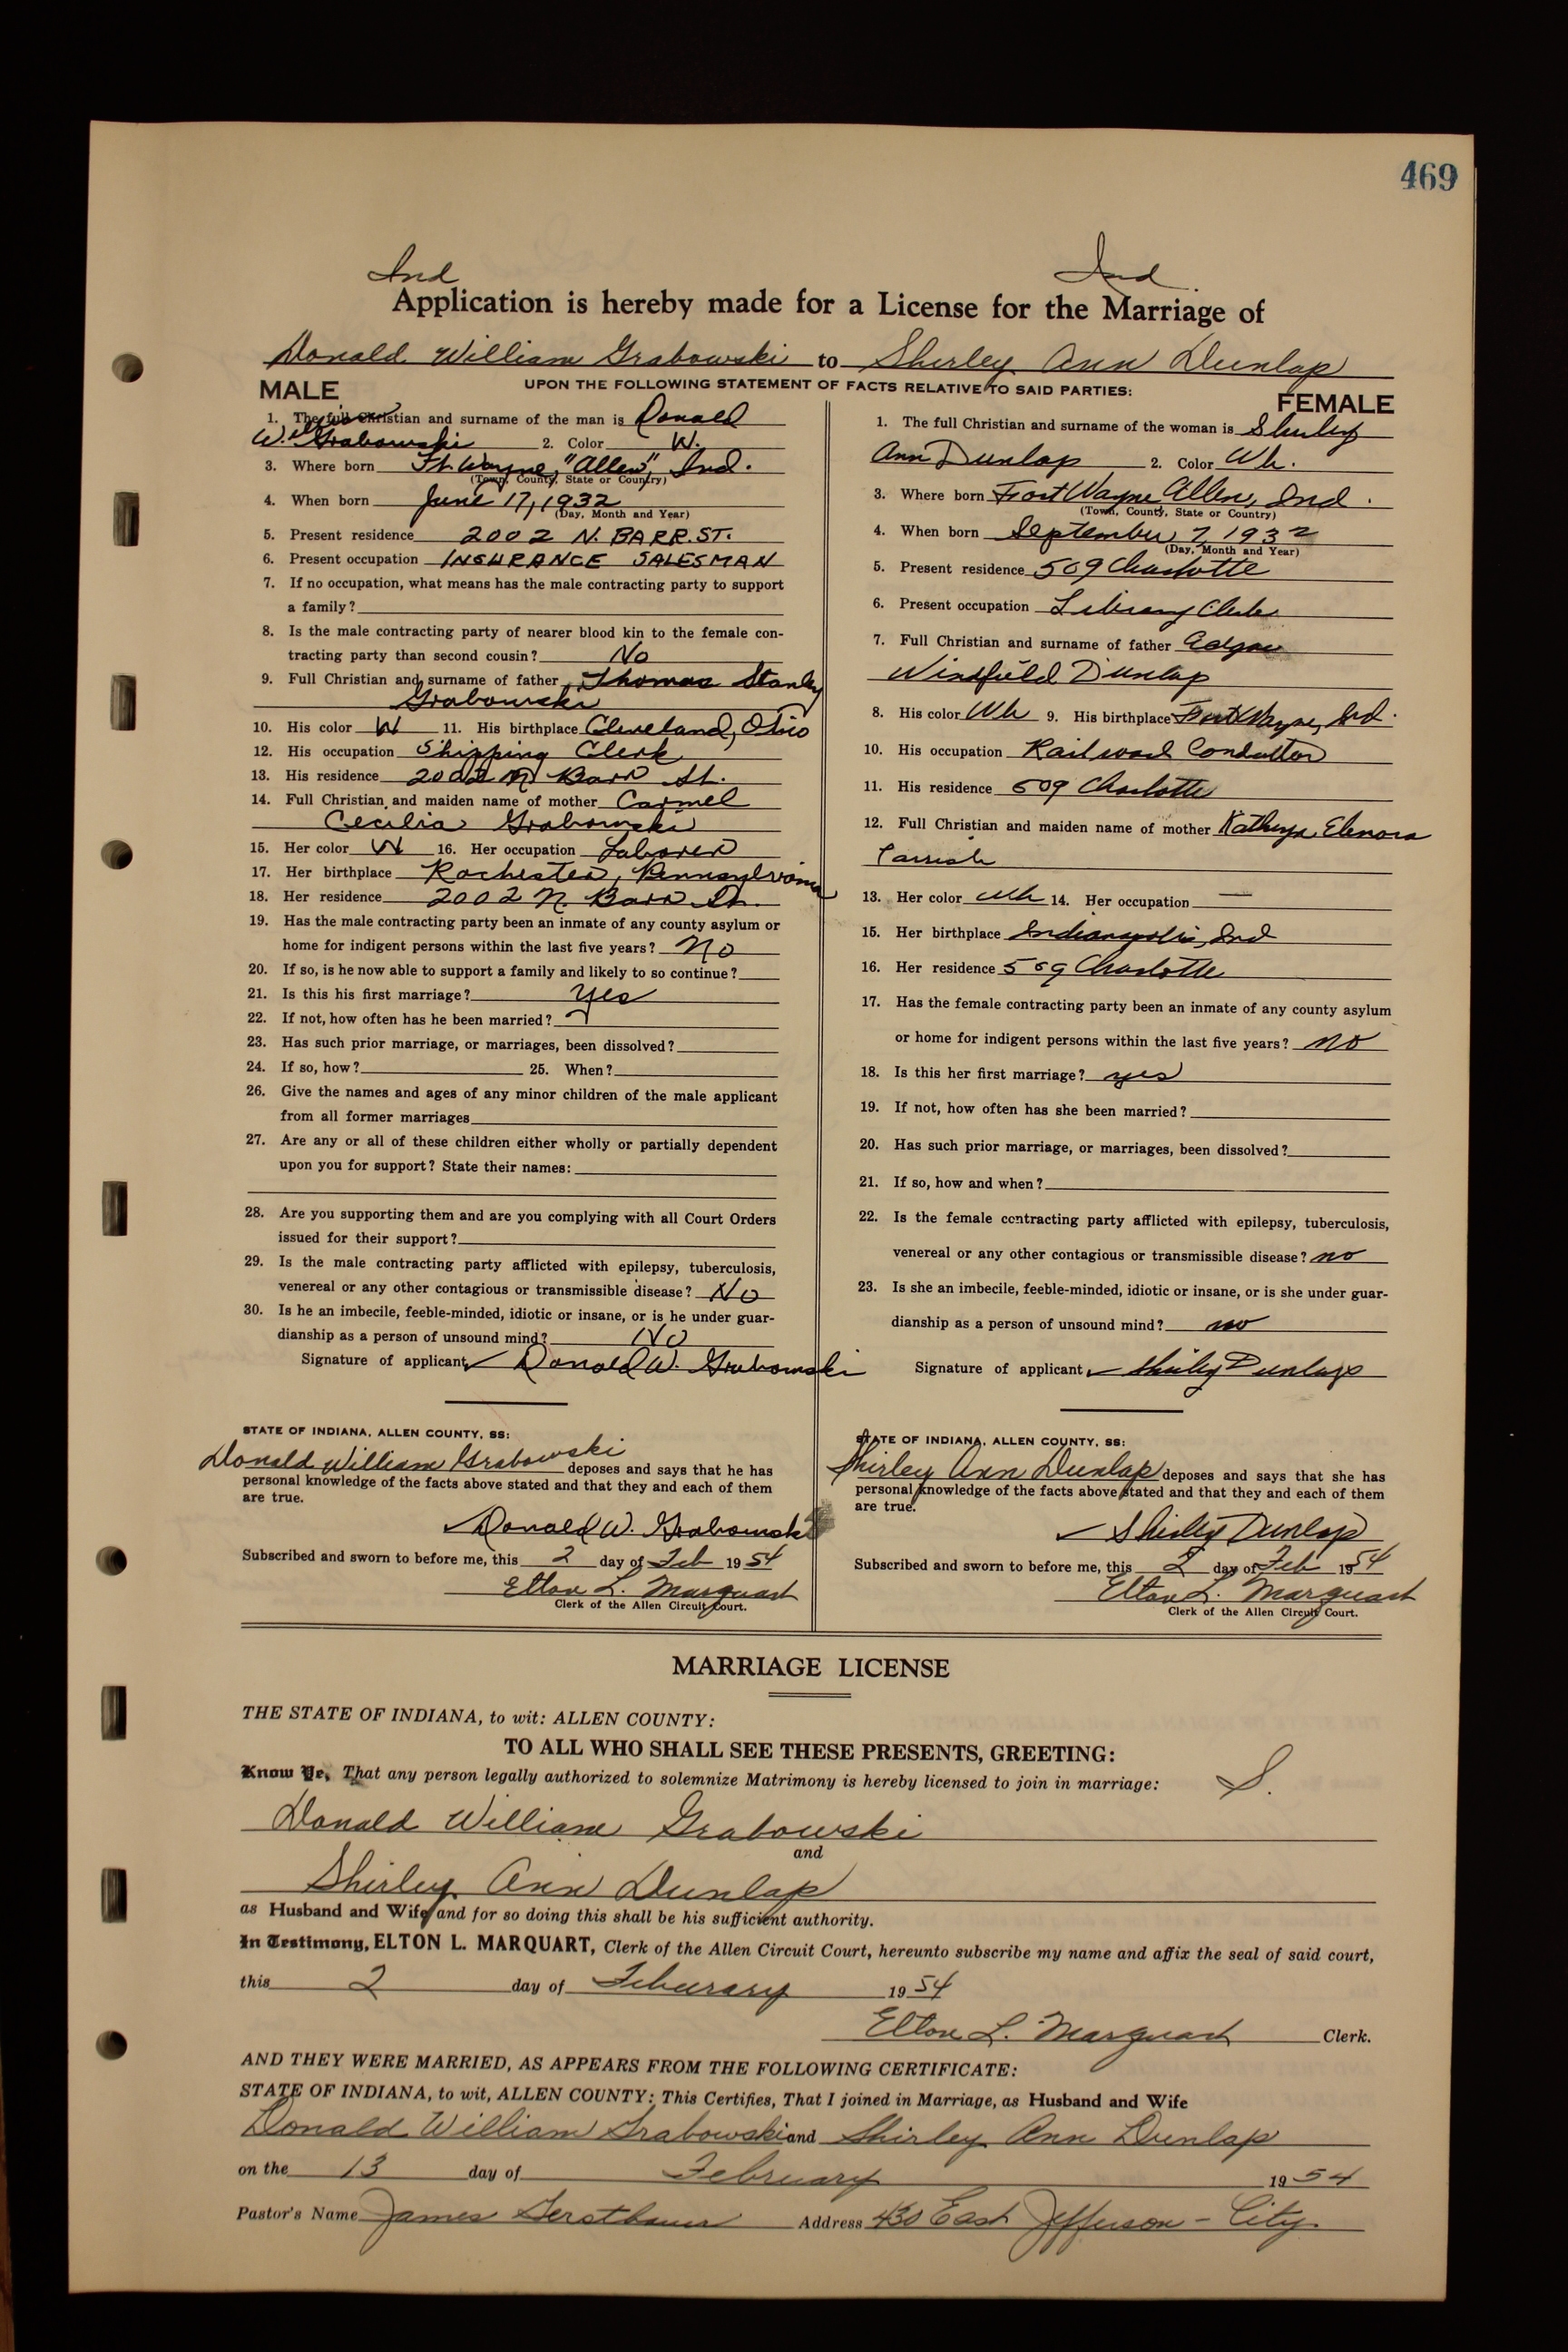 469
Ind Ind
Application is hereby made for a License for the Marriage of
Donald William Grabowski to Shirley Ann Dunlap
UPON THE FOLLOWING STATEMENT OF FACTS RELATIVE TO SAID PARTIES:
MALE
1. The full Christian and surname of the man is Donald
W. Grabowski 2. Color W.
3. Where born Ft. Wayne, "Allen", Ind.
(Town, County, State or Country)
4. When born June 17, 1932
(Day, Month and Year)
5. Present residence 2002 N. BARR. ST.
6. Present occupation INSURANCE SALESMAN
7. If no occupation, what means has the male contracting party to support
a family?
8. Is the male contracting party of nearer blood kin to the female con-
tracting party than second cousin? No
9. Full Christian and surname of father Thomas Stanley
Grabowski
10. His color W 11. His birthplace Cleveland, Ohio
12. His occupation Shipping Clerk
13. His residence 2002 N Barr St.
14. Full Christian and maiden name of mother Carmel
Cecilia Grabowski
15. Her color W 16. Her occupation Laborer
17. Her birthplace Rochester, Pennsylvania
18. Her residence 2002 N. Barr St.
19. Has the male contracting party been an inmate of any county asylum or
home for indigent persons within the last five years? no
20. If so, is he now able to support a family and likely to so continue?
21. Is this his first marriage? yes
22. If not, how often has he been married?
23. Has such prior marriage, or marriages, been dissolved?
24. If so, how? 25. When?
26. Give the names and ages of any minor children of the male applicant
from all former marriages
27. Are any or all of these children either wholly or partially dependent
upon you for support? State their names:
28. Are you supporting them and are you complying with all Court Orders
issued for their support?
29. Is the male contracting party afflicted with epilepsy, tuberculosis,
venereal or any other contagious or transmissible disease? No
30. Is he an imbecile, feeble-minded, idiotic or insane, or is he under guar-
dianship as a person of unsound mind? No
Signature of applicant Donald W. Grabowski
STATE OF INDIANA, ALLEN COUNTY, SS:
Donald William Grabowski deposes and says that he has
personal knowledge of the facts above stated and that they and each of them
are true.
Donald W. Grabowski
Subscribed and sworn to before me, this 2 day of Feb 1954
Elton L. Marquart
Clerk of the Allen Circuit Court.
FEMALE
1. The full Christian and surname of the woman is Shirley
Ann Dunlap 2. Color Wh.
3. Where born Fort Wayne Allen, Ind.
(Town, County, State or Country)
4. When born September 7, 1932
(Day, Month and Year)
5. Present residence 509 Charlotte
6. Present occupation Library Clerk
7. Full Christian and surname of father Edgar
Windfield Dunlap
8. His color Wh 9. His birthplace Fort Wayne, Ind.
10. His occupation Railroad Conductor
11. His residence 509 Charlotte
12. Full Christian and maiden name of mother Kathryn Elenora
Parrish
13. Her color Wh 14. Her occupation —
15. Her birthplace Indianapolis, Ind
16. Her residence 509 Charlotte
17. Has the female contracting party been an inmate of any county asylum
or home for indigent persons within the last five years? no
18. Is this her first marriage? yes
19. If not, how often has she been married?
20. Has such prior marriage, or marriages, been dissolved?
21. If so, how and when?
22. Is the female contracting party afflicted with epilepsy, tuberculosis,
venereal or any other contagious or transmissible disease? no
23. Is she an imbecile, feeble-minded, idiotic or insane, or is she under guar-
dianship as a person of unsound mind? no
Signature of applicant Shirley Dunlap
STATE OF INDIANA, ALLEN COUNTY, SS:
Shirley Ann Dunlap deposes and says that she has
personal knowledge of the facts above stated and that they and each of them
are true.
Shirley Dunlap
Subscribed and sworn to before me, this 2 day of Feb 1954
Elton L. Marquart
Clerk of the Allen Circuit Court.
MARRIAGE LICENSE
THE STATE OF INDIANA, to wit: ALLEN COUNTY:
TO ALL WHO SHALL SEE THESE PRESENTS, GREETING:
Know Ye, That any person legally authorized to solemnize Matrimony is hereby licensed to join in marriage: S.
Donald William Grabowski
and
Shirley Ann Dunlap
as Husband and Wife and for so doing this shall be his sufficient authority.
In Testimony, ELTON L. MARQUART, Clerk of the Allen Circuit Court, hereunto subscribe my name and affix the seal of said court,
this 2 day of Feburary 1954
Elton L. Marquart Clerk.
AND THEY WERE MARRIED, AS APPEARS FROM THE FOLLOWING CERTIFICATE:
STATE OF INDIANA, to wit, ALLEN COUNTY: This Certifies, That I joined in Marriage, as Husband and Wife
Donald William Grabowski and Shirley Ann Dunlap
on the 13 day of February 1954
Pastor's Name James Address 430 East Jefferson - City.